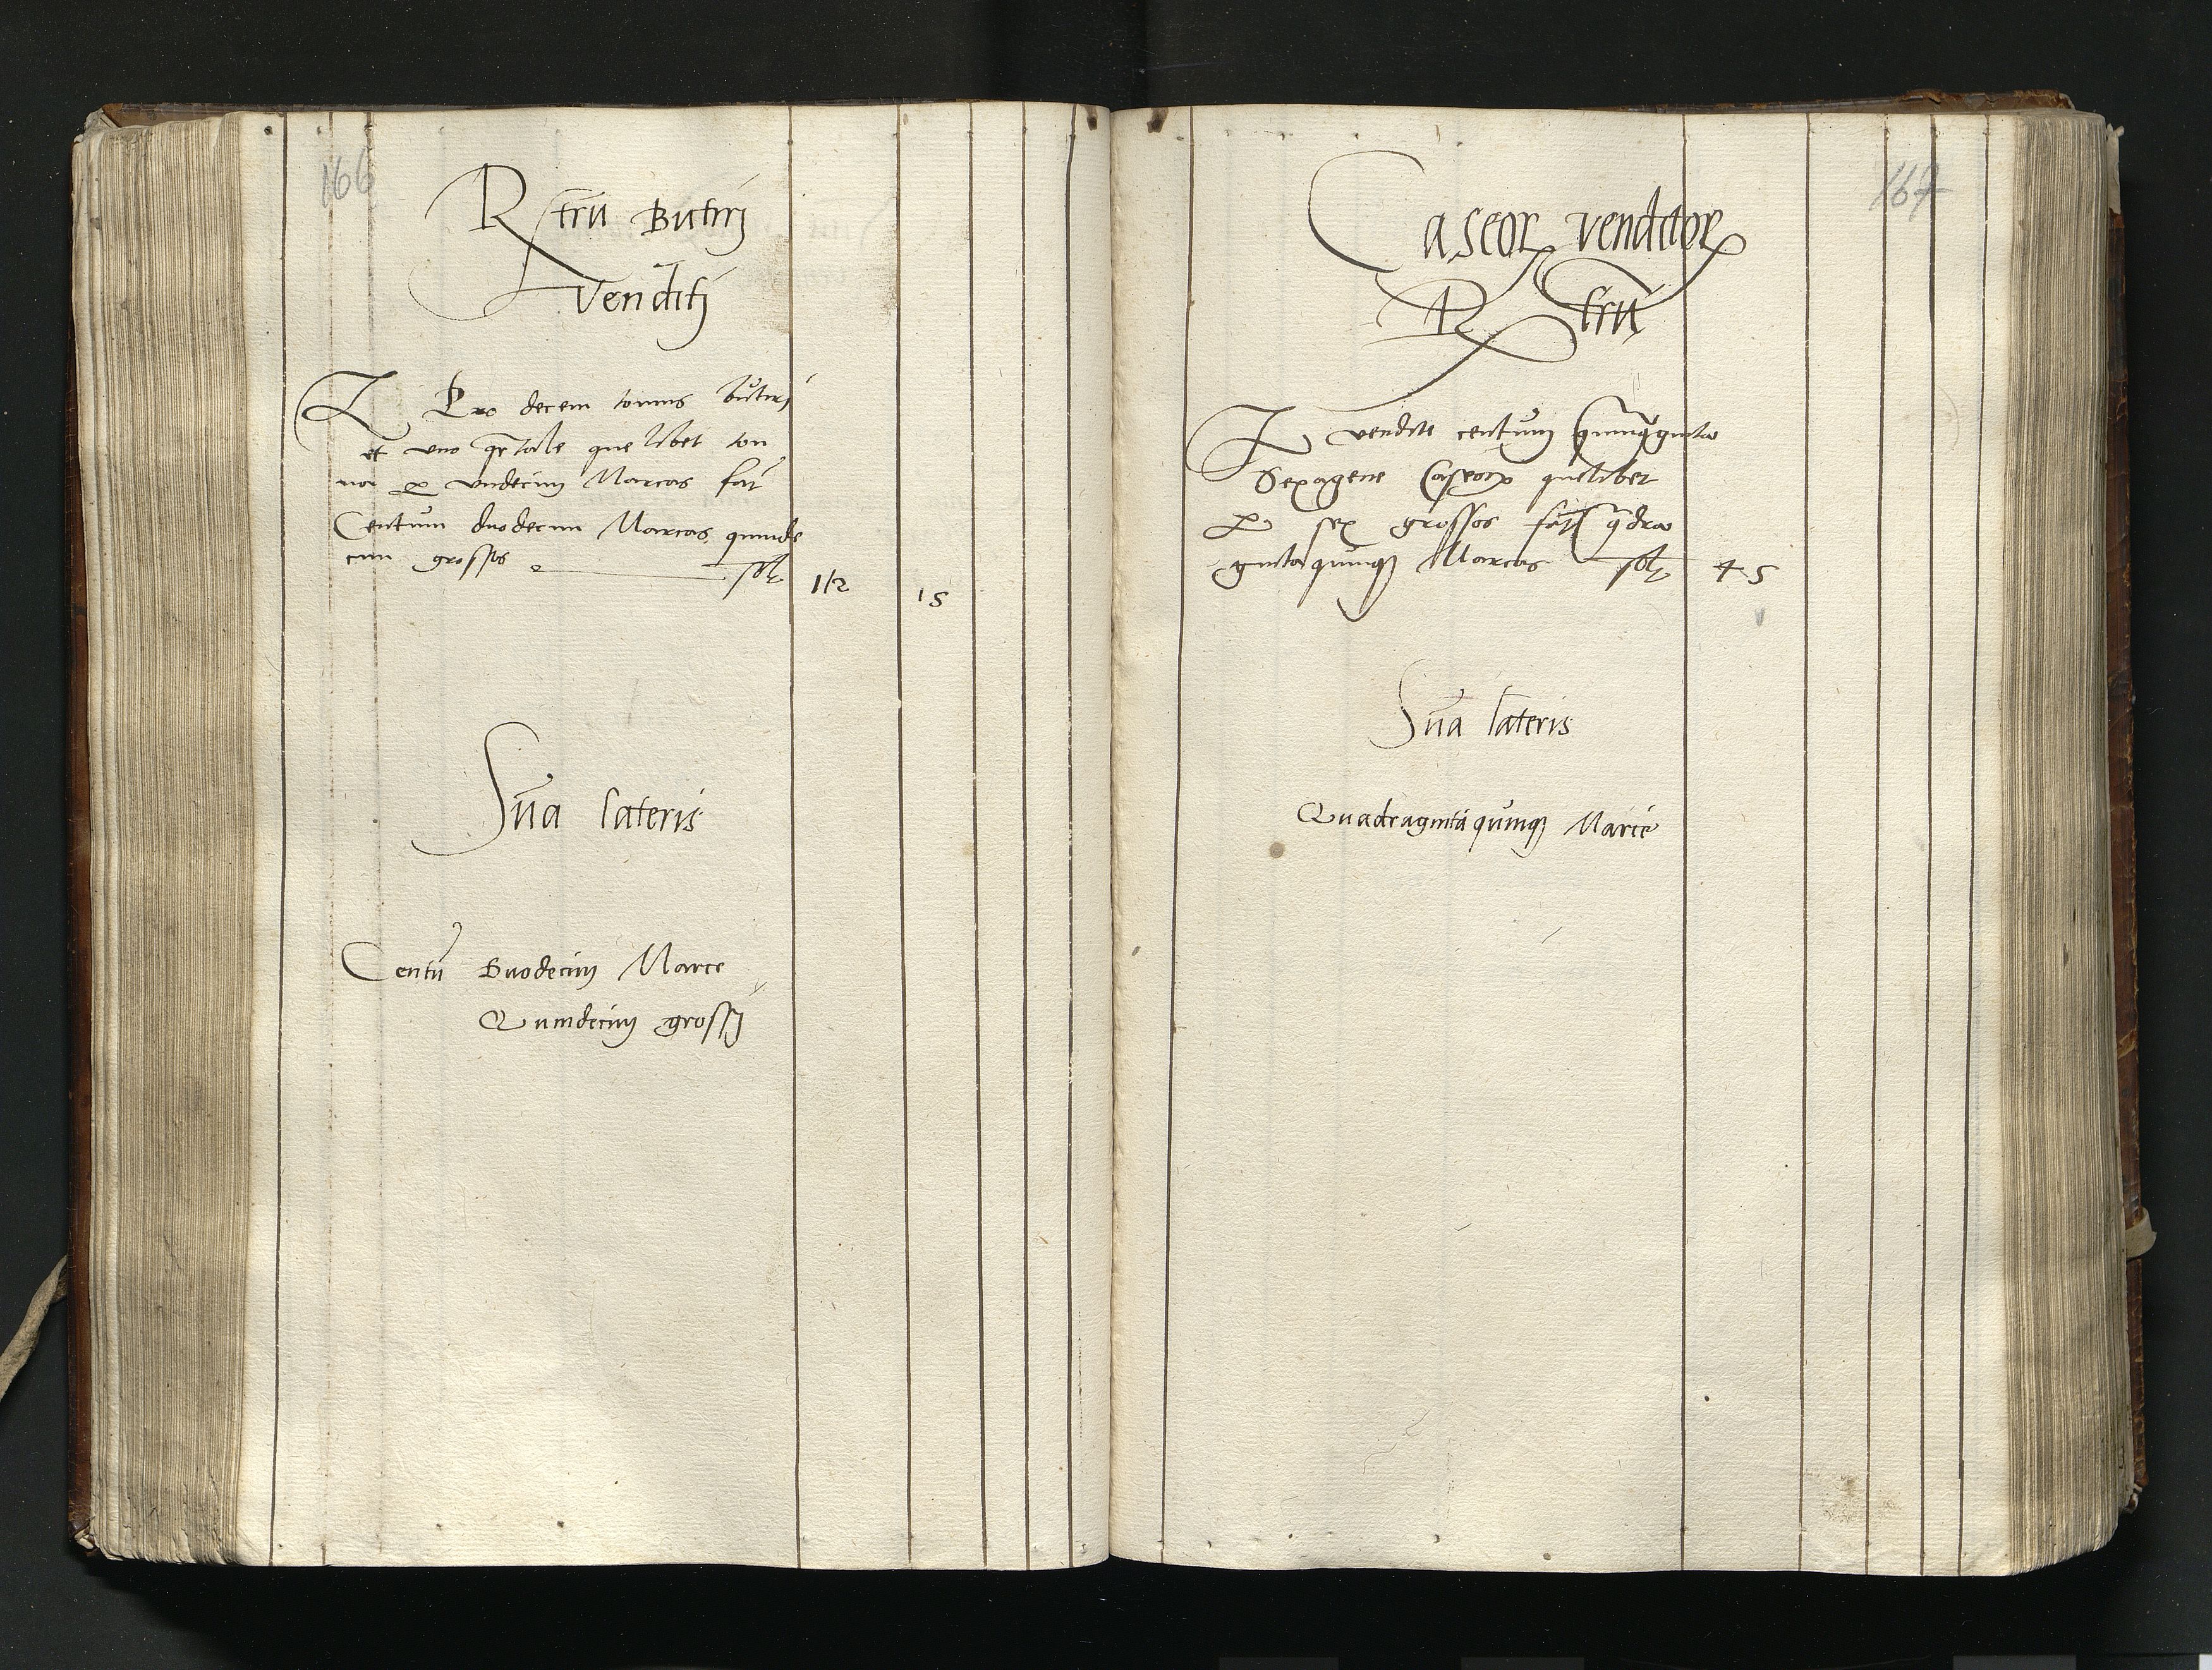 166
Rstrũ Butirj
Venditj
I Pro decem tonnis butirj
et uno qrtale que libet ton
na ꝑ undecim Marcas fat̃
Centum duodecim Marcas quinde
cim grossos
112 15
Sũa lateris
Centũ Duodecim Marce
Quindecim grossj
167
Caseoꝝ venditoꝝ
Rstrũ
I vendite centum quinqginta
Sexagene Caseoꝝ quelibet
ꝑ sex grossos fat̃ qdra
gintaquinqꝫ Marcas
45
Sũa lateris
Quadragintaquinqꝫ Marce